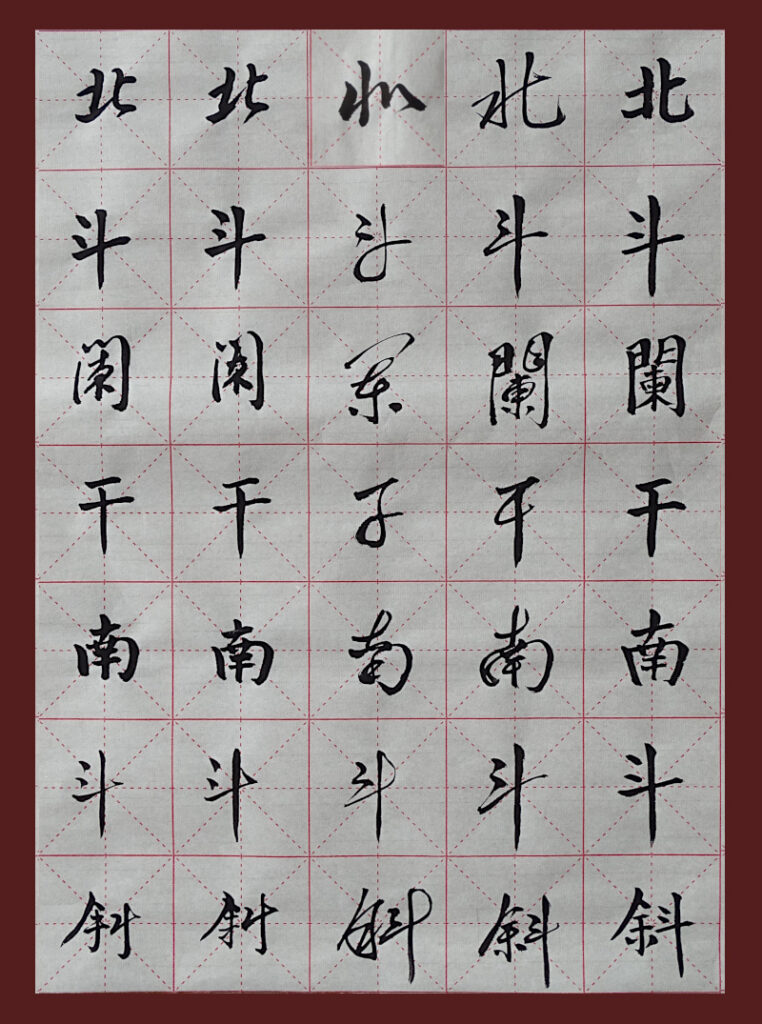 北斗闌干南斗斜
北斗闌干南斗斜
北斗阑干南斗斜
北斗阑干南斗斜
北斗阑干南斗斜